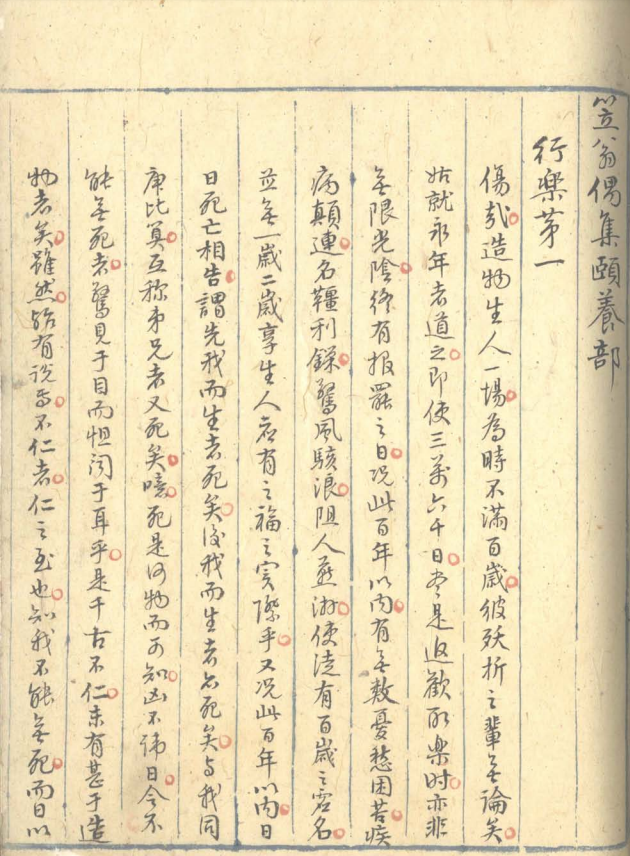 笠翁偶集頤養部
行樂第一
傷哉造物生人一場為時不滿百歲彼殀折之輩無論矣
姑就永年者道之即使三萬六千日盡是追歡取樂時亦非
無限光陰終有报罷之日况此百年以内有無数憂愁困苦疾
病顛連名韁利鎖驚風駭浪阻人燕游使徒有百歲之虚名
並無一歲二歲享生人應有之福之實際乎又况此百年以内日
日死亡相告謂先我而生者死矣後我而生者亦死矣与我同
庚比算互称弟兄者又死矣噫死是何物而可知凶不諱日令不
能無死者驚見于目而怛闻于耳乎是千古不仁未有甚于造
物者矣雖然殆有说焉不仁者仁之至也知我不能無死而日以